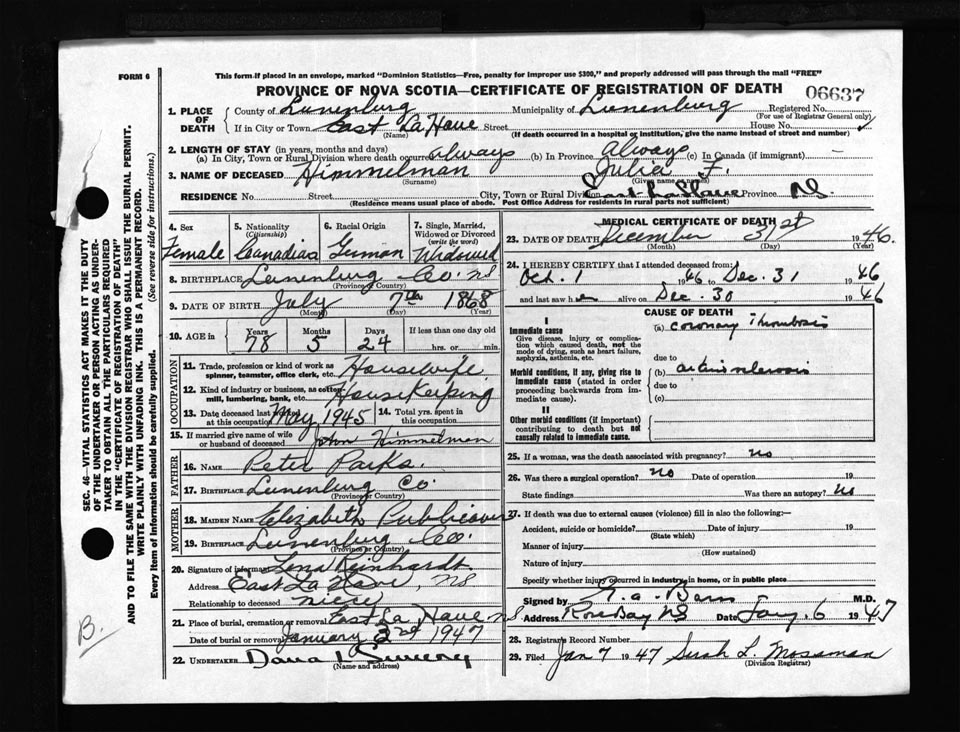 FORM 6
This form if placed in an envelope, marked "Dominion Statistics—Free, penalty for improper use $300," and properly addressed will pass through the mail "FREE"
PROVINCE OF NOVA SCOTIA—CERTIFICATE OF REGISTRATION OF DEATH
06637
1. PLACE OF DEATH
County of Lunenburg Municipality of Lunenburg Registered No.
(For use of Registrar General only)
If in City or Town East La Have Street House No.
(Name) (If death occurred in a hospital or institution, give the name instead of street and number)
2. LENGTH OF STAY (in years, months and days)
(a) In City, Town or Rural Division where death occurred always (b) In Province Always (c) In Canada (if immigrant)
3. NAME OF DECEASED Himmelman Julia F.
(Given name or names)
RESIDENCE No. Street City, Town or Rural Division East La Have Province NS
(Residence means usual place of abode. Post Office Address for residents in rural parts not sufficient)
4. Sex Female
5. Nationality (Citizenship) Canadian
6. Racial Origin German
7. Single, Married, Widowed or Divorced (write the word) Widowed
8. BIRTHPLACE Lunenburg Co. NS
(Province or Country)
9. DATE OF BIRTH July 7th 1868
(Month) (Day) (Year)
10. AGE in Years Months Days If less than one day old
78 5 24 hrs. or min.
OCCUPATION
11. Trade, profession or kind of work as spinner, teamster, office clerk, etc. Housewife
12. Kind of industry or business, as cotton mill, lumbering, bank, etc. House Keeping
13. Date deceased last worked at this occupation May 1945
14. Total yrs. spent in this occupation
15. If married give name of wife or husband of deceased John Himmelman
FATHER
16. NAME Peter Parks.
17. BIRTHPLACE Lunenburg Co.
(Province or Country)
MOTHER
18. MAIDEN NAME Elizabeth Publicover
19. BIRTHPLACE Lunenburg Co.
(Province or Country)
20. Signature of informant Lena Reinhardt
Address East La Have, NS
Relationship to deceased niece
21. Place of burial, cremation or removal East La Have NS
Date of burial or removal January 2nd 1947
22. UNDERTAKER Dana L Sweeny
(Name and address)
MEDICAL CERTIFICATE OF DEATH
23. DATE OF DEATH December 31st 1946.
(Month) (Day)
24. I HEREBY CERTIFY that I attended deceased from:
Oct. 1 1946 to Dec. 31 1946
and last saw her alive on Dec. 30 1946
CAUSE OF DEATH
I
Immediate cause
Give disease, injury or complication which caused death, not the mode of dying, such as heart failure, asphyxia, asthenia, etc.
(a) coronary Thrombosis
due to
Morbid conditions, if any, giving rise to immediate cause (stated in order proceeding backwards from immediate cause).
(b) arteriosclerosis
due to
(c)
II
Other morbid conditions (if important) contributing to death but not causally related to immediate cause.
25. If a woman, was the death associated with pregnancy? no
26. Was there a surgical operation? no Date of operation 19
State findings Was there an autopsy? no
27. If death was due to external causes (violence) fill in also the following:—
Accident, suicide or homicide? Date of injury 19
(State which)
Manner of injury
(How sustained)
Nature of injury
Specify whether injury occurred in industry, in home, or in public place
Signed by M.D.
Address Rose Bay NS Date Jany. 6 1947
28. Registrar's Record Number
29. Filed Jan 7 1947 L. Mossman
(Division Registrar)
SEC. 46—VITAL STATISTICS ACT MAKES IT THE DUTY
OF THE UNDERTAKER OR PERSON ACTING AS UNDERTAKER TO OBTAIN ALL THE PARTICULARS REQUIRED
IN THE "CERTIFICATE OF REGISTRATION OF DEATH"
AND TO FILE THE SAME WITH THE DIVISION REGISTRAR WHO SHALL ISSUE THE BURIAL PERMIT.
WRITE PLAINLY WITH UNFADING INK. THIS IS A PERMANENT RECORD.
Every item of information should be carefully supplied. (See reverse side for instructions.)
B.